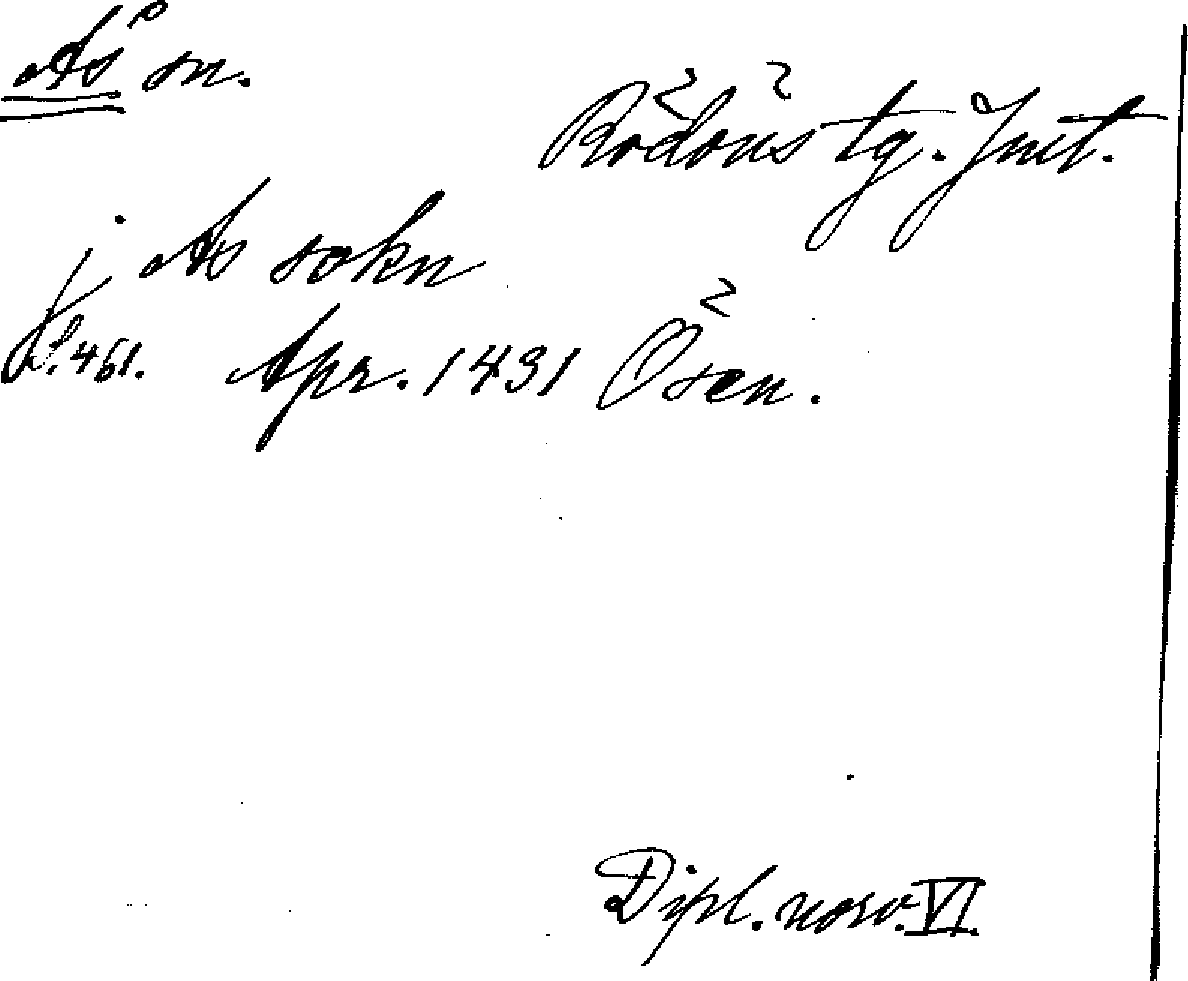 Ås sn.
Rödöns tg. Jmt.
j As sokn
S. 461. Apr. 1431 Ösen.
Dipl. norv. VI.